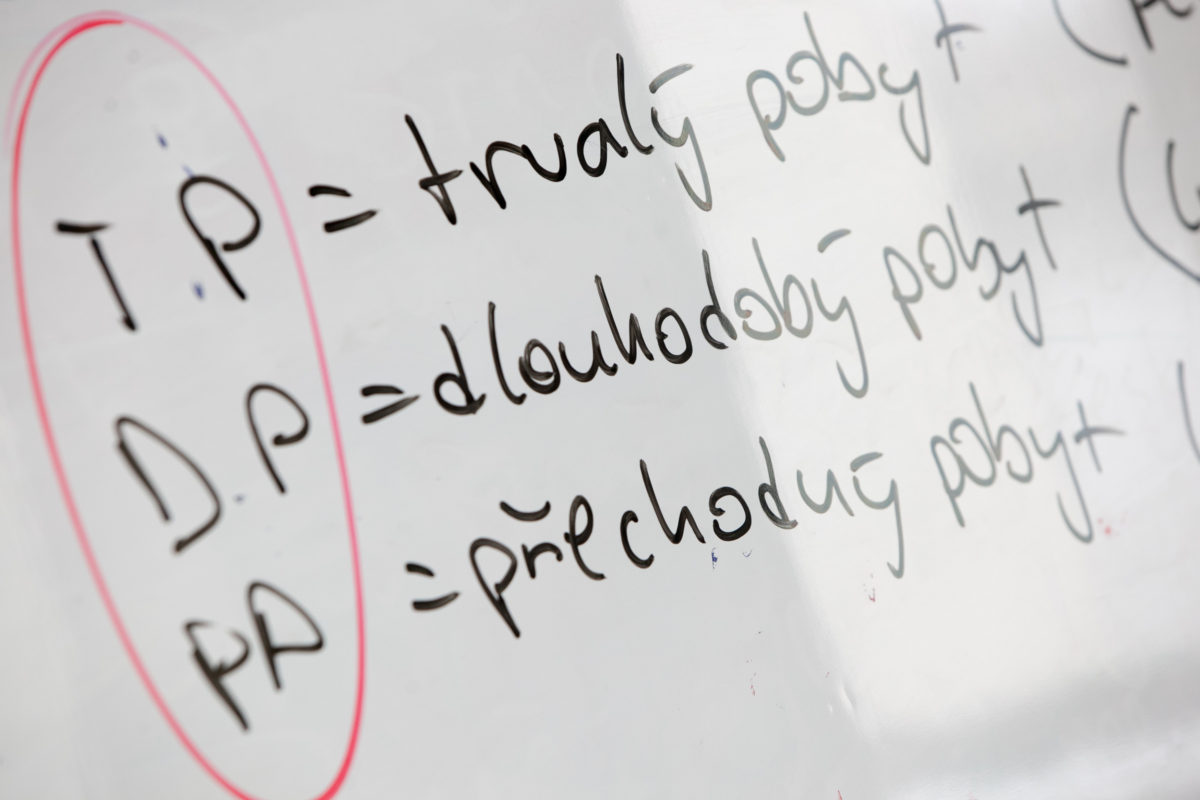 T.P = trvalý pobyt (
D.P = dlouhodobý pobyt (
PP = přechodný pobyt (